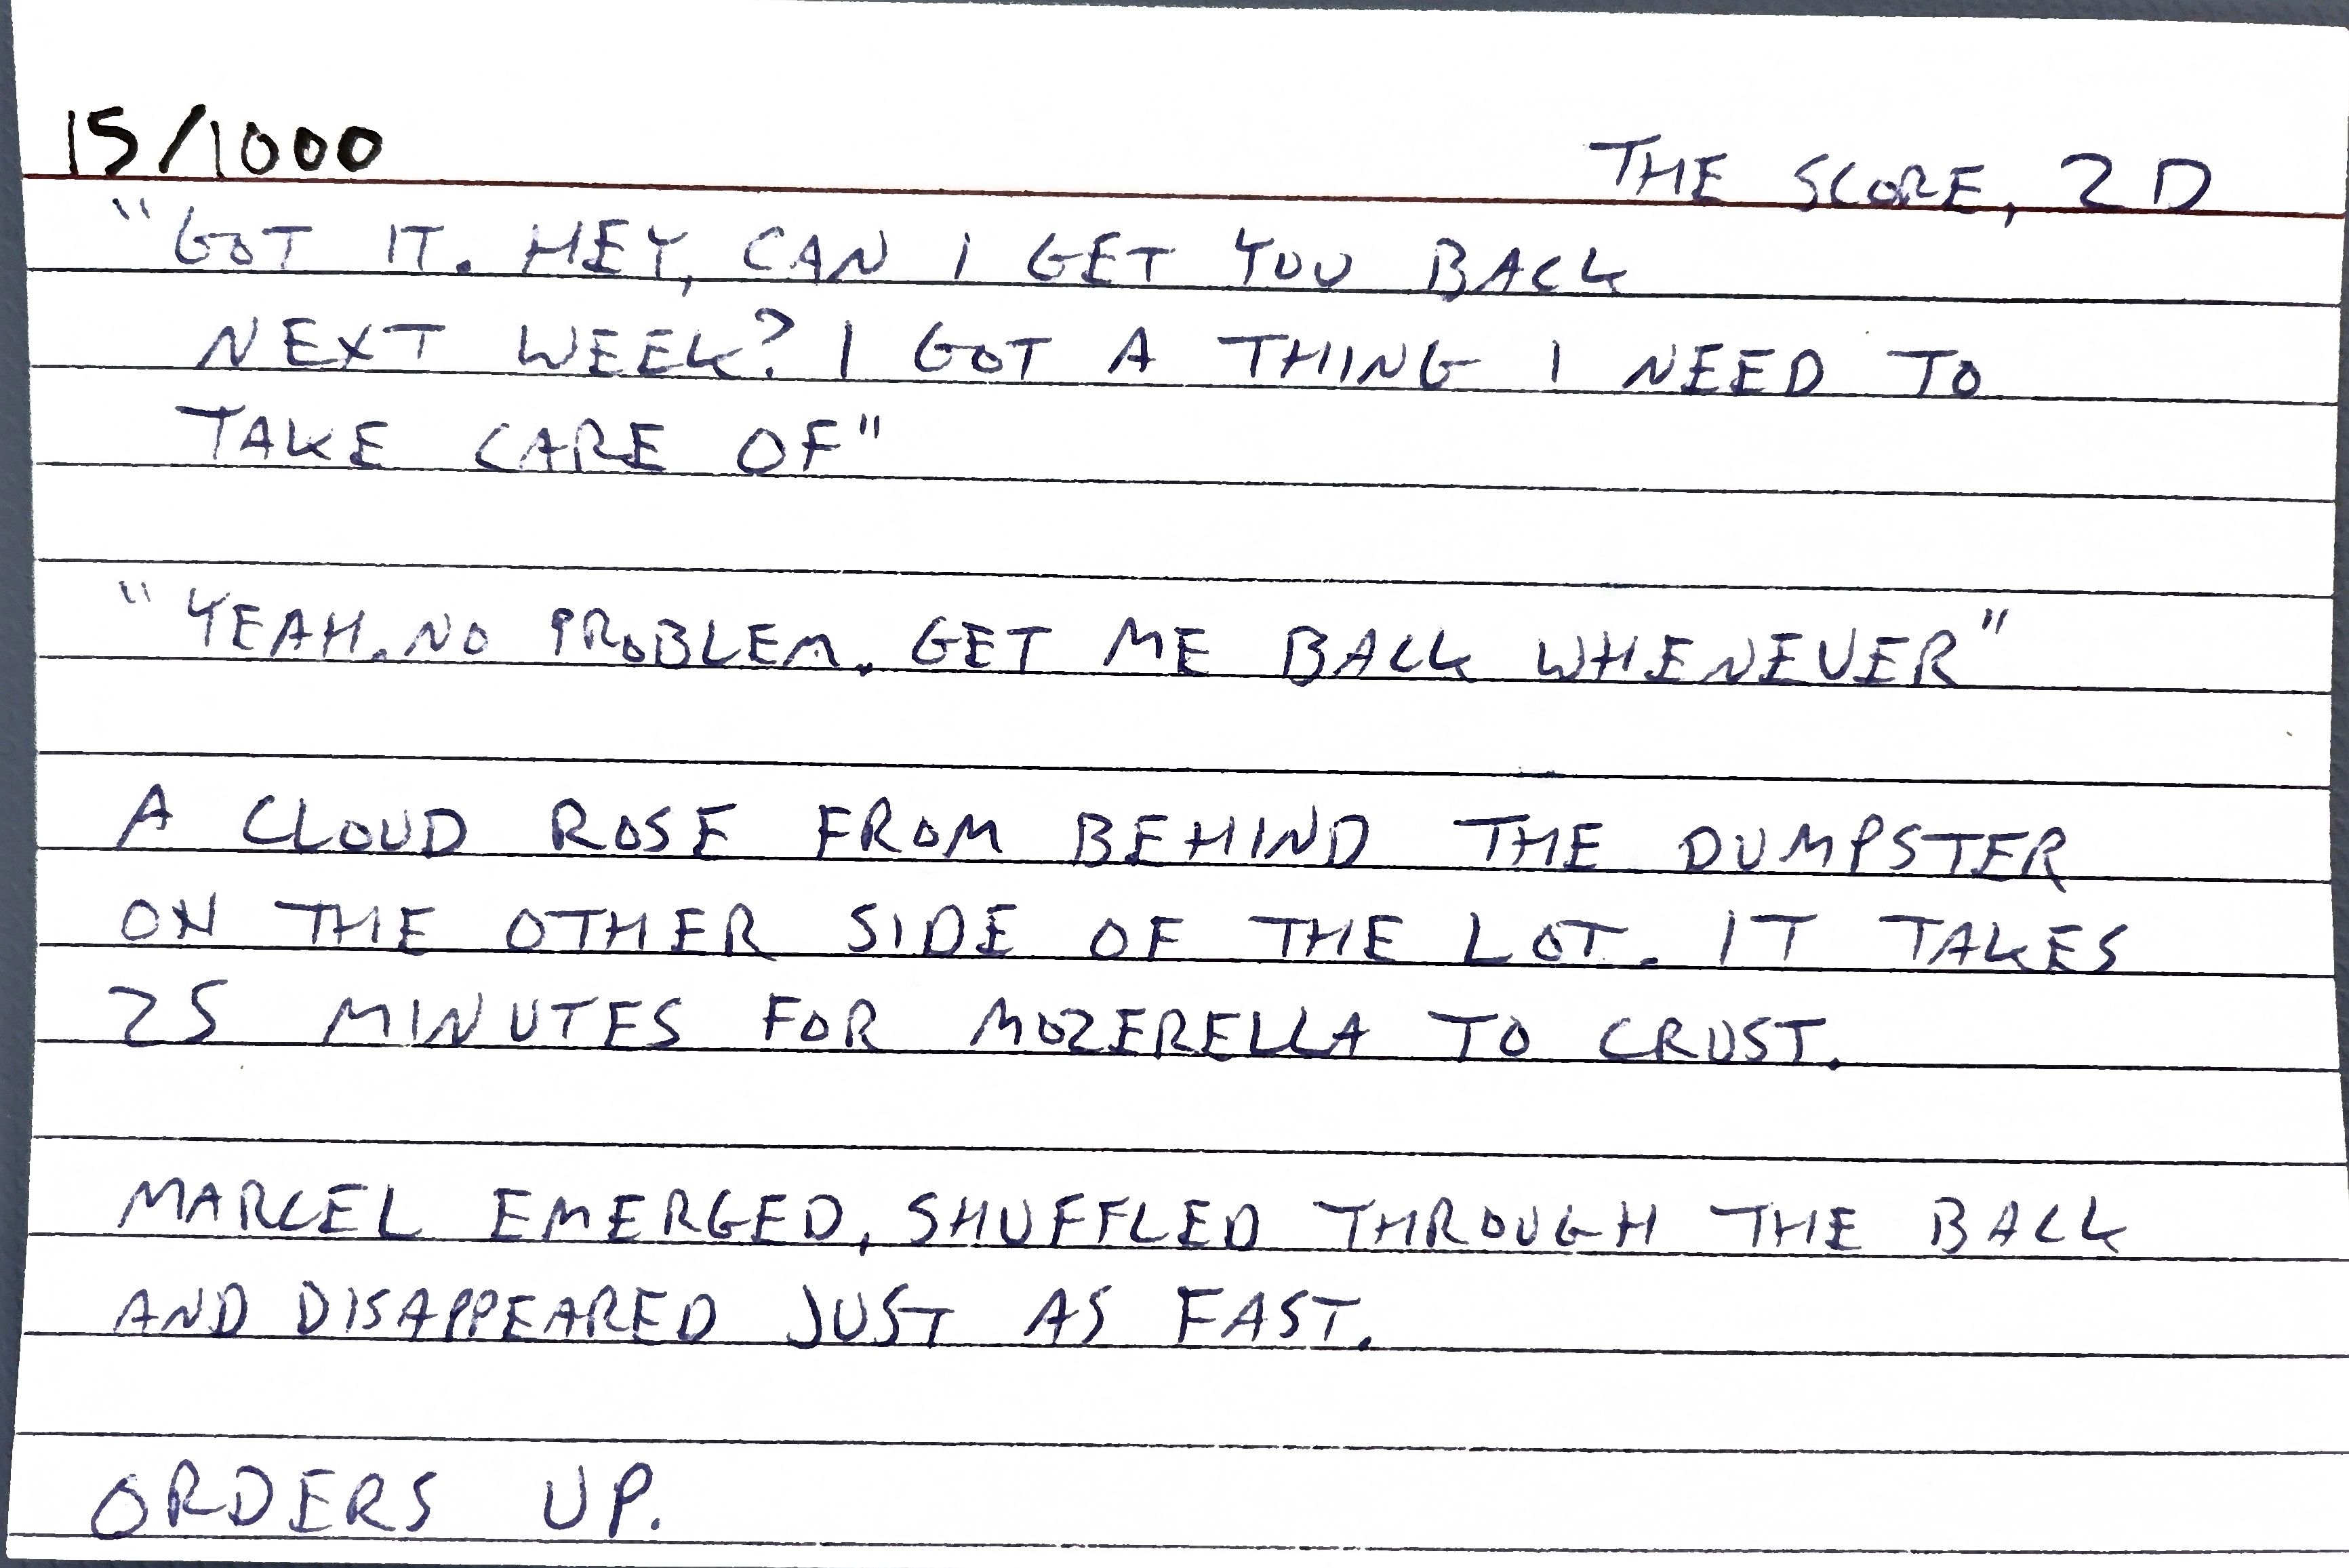 15/1000
THE SCORE, 2D
"GOT IT. HEY, CAN I GET YOU BACK
NEXT WEEK? I GOT A THING I NEED TO
TAKE CARE OF"
"YEAH. NO PROBLEM. GET ME BACK WHENEVER"
A CLOUD ROSE FROM BEHIND THE DUMPSTER
ON THE OTHER SIDE OF THE LOT. IT TAKES
25 MINUTES FOR MOZERELLA TO CRUST.
MARCEL EMERGED, SHUFFLED THROUGH THE BACK
AND DISAPPEARED JUST AS FAST.
ORDERS UP.